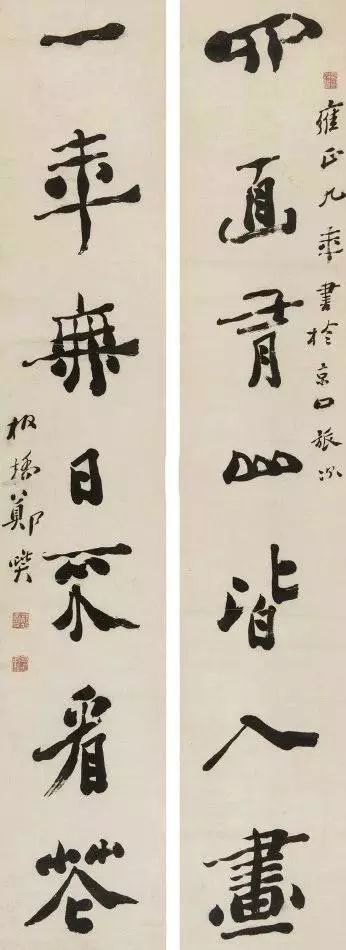 雍正九年書於京口旅次
四面青山皆入畫
一年無日不看花
板橋鄭燮